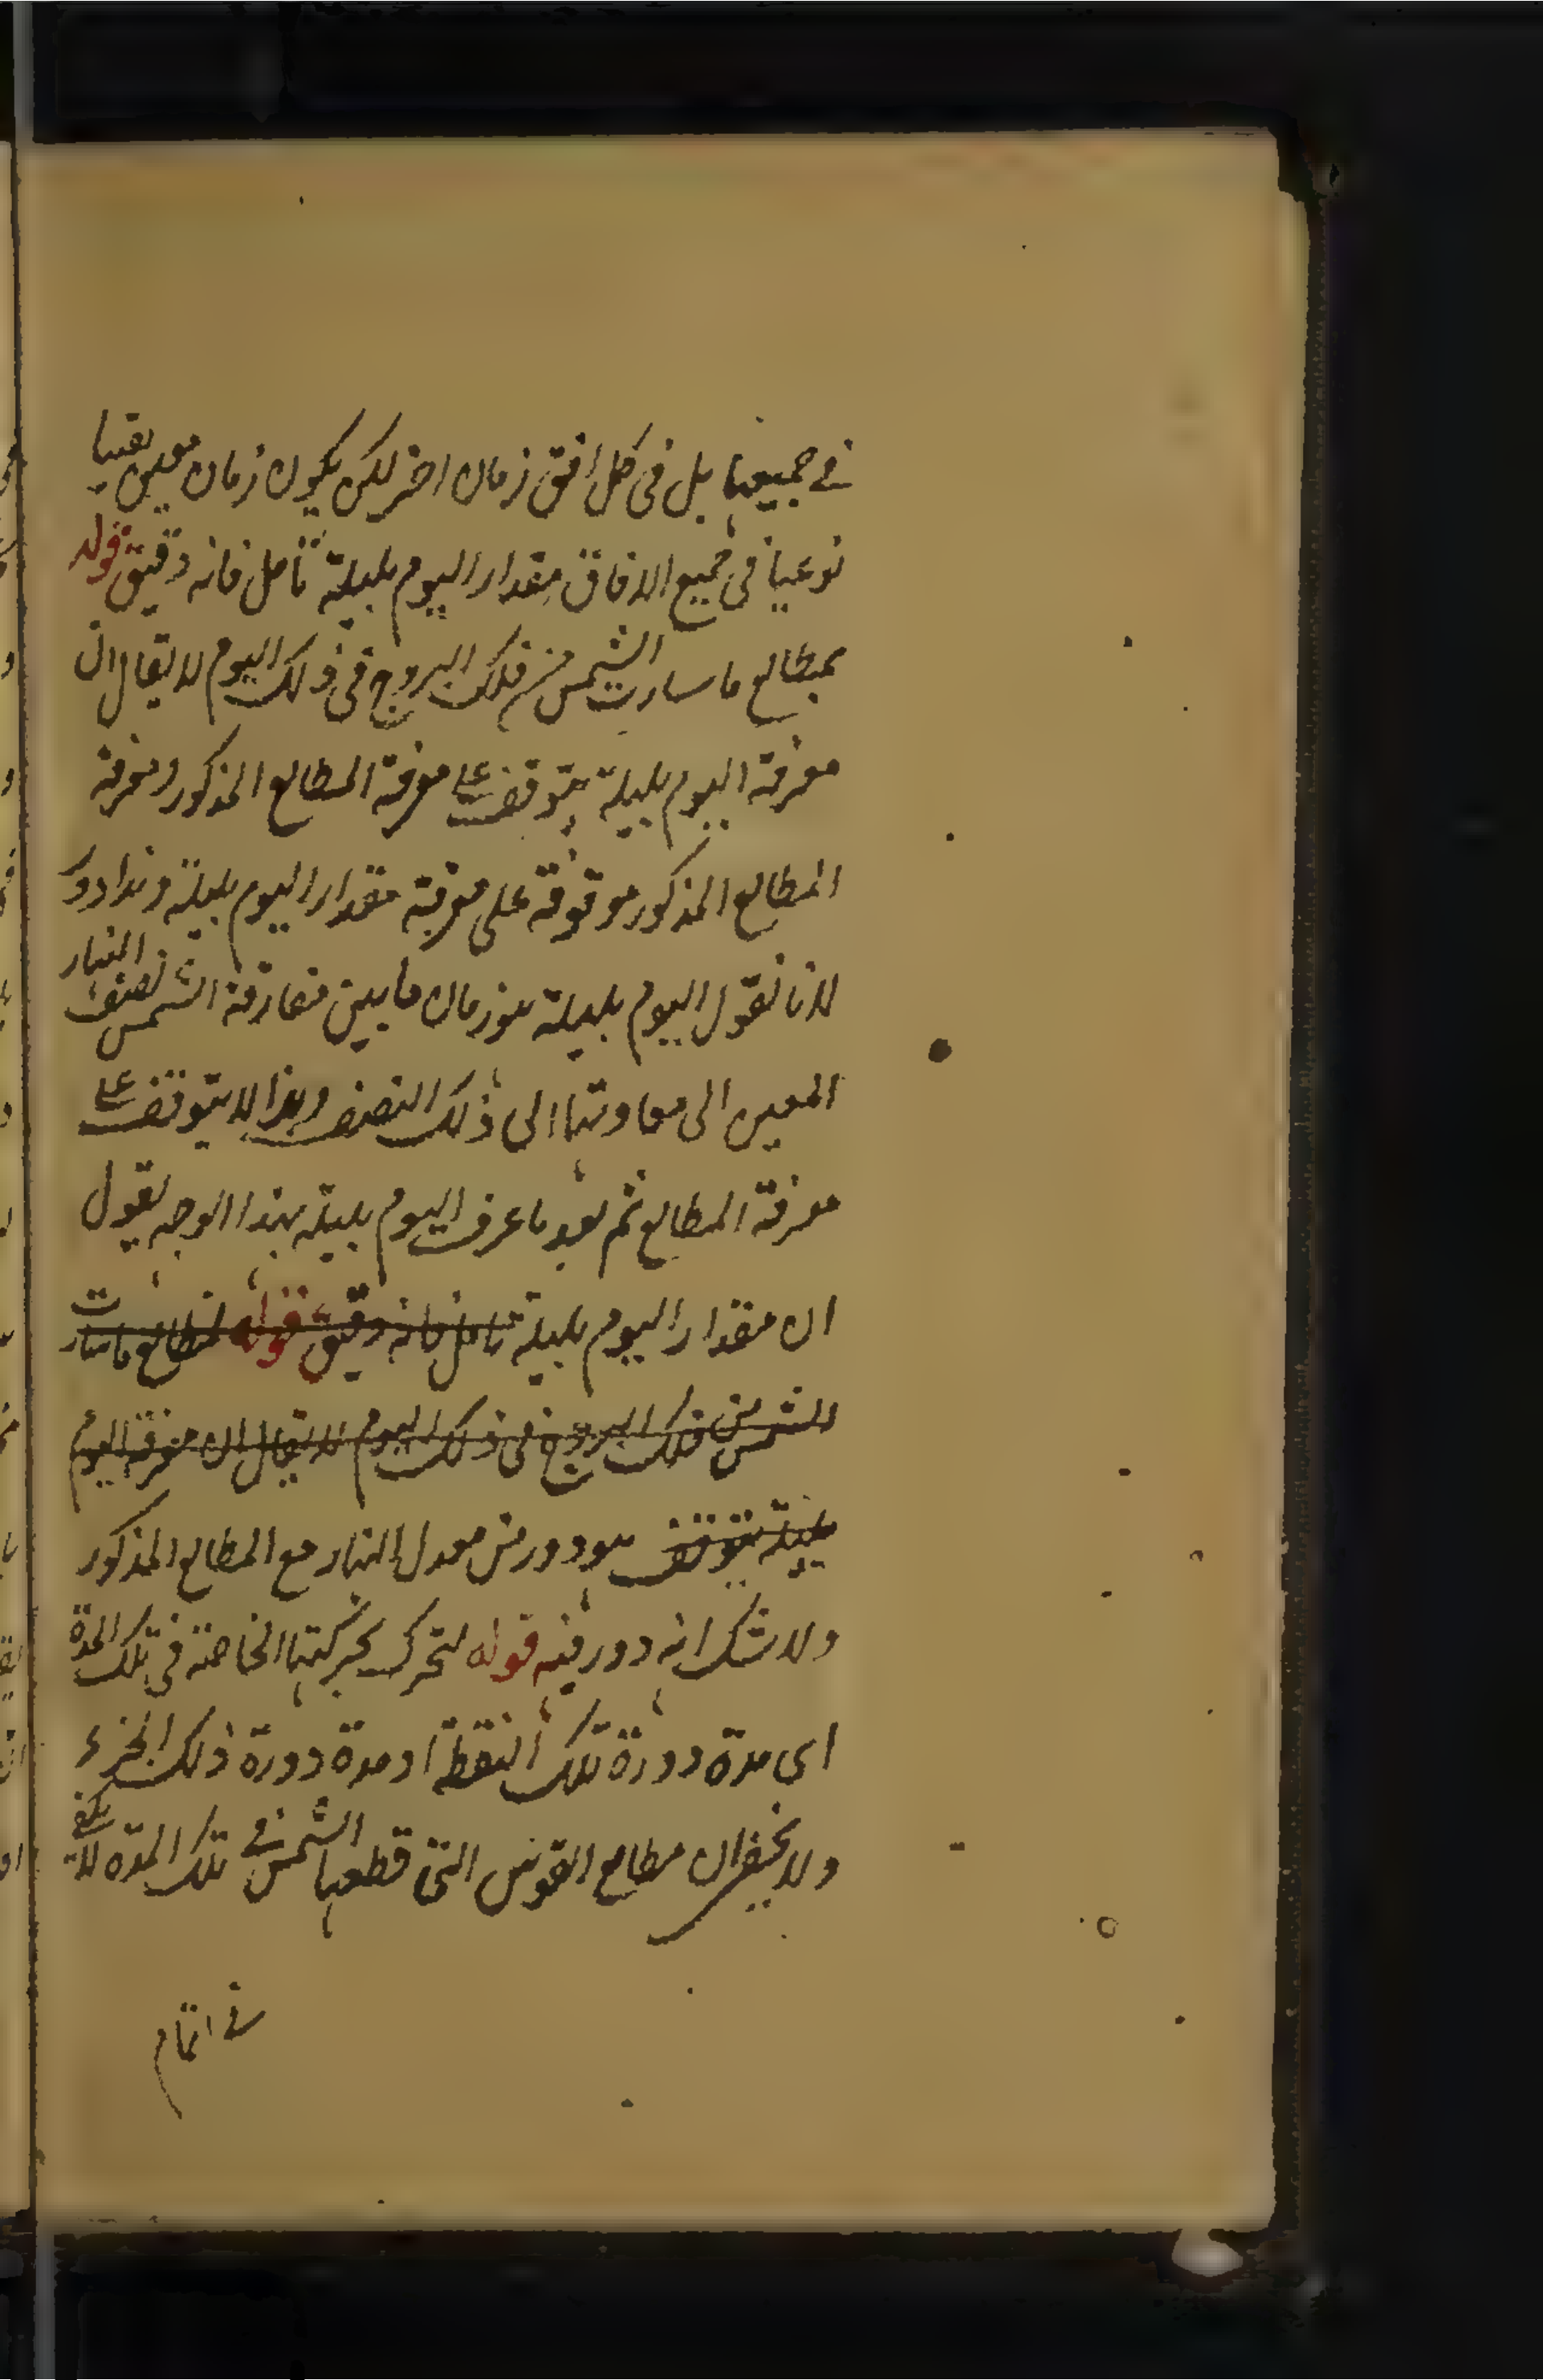 في جميعها بل فى كل افق زمان اخر لكن يكون زمان معين تعينا
نوعيا فى جميع الافاق مقدار اليوم بليلة تأمل فانه دقيق قوله
بمطالع ما سارت الشمس من فلك البروج فى ذلك اليوم لا يقال ان
معرفة اليوم بليلة يتوقف على معرفة المطالع المذكور ومعرفة
المطالع المذكور موقوفة على معرفة مقدار اليوم بليلة وهذا دور
لانا نقول اليوم بليلة هو زمان ما بين مفارقة الشمس نصف النهار
المعين الى معاودتها الى ذلك النصف وهذا لا يتوقف على
معرفة المطالع ثم بعد ما عرف اليوم بليلة بهذا الوجه يقول
ان مقدار اليوم بليلة تامل فانه دقيق قوله لمطالع ما سارت
الشمس من فلك البروج فى ذلك اليوم لا يقال ان معرفة اليوم
بليلة يتوقف هو دور من معدل النهار مع المطالع المذكور
ولا شك انه دور فيه قوله لتحرك بحركتها الخاصة فى تلك المدة
اى مدة دورة تلك النقطة او مدة دورة ذلك الجزء
ولا يخفى ان مطالع القوس التى قطعها الشمس في تلك المدة لا يكفي
في اتمام